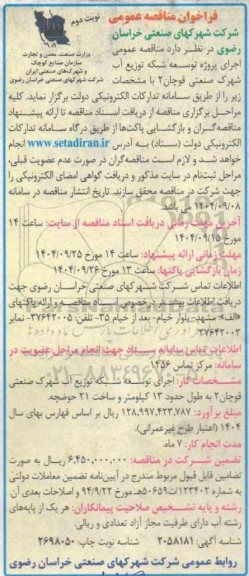 نوبت دوم
فراخوان مناقصه عمومی
وزارت صنعت، معدن و تجارت
سازمان صنایع کوچک
و شهرک‌های صنعتی ایران
شرکت شهرکهای صنعتی خراسان رضوی
شرکت شهرکهای صنعتی خراسان
رضوی در نظر دارد مناقصه عمومی
اجرای پروژه توسعه شبکه توزیع آب
شهرک صنعتی قوچان۲ با مشخصات
زیر را از طریق سامانه تدارکات الکترونیکی دولت برگزار نماید. کلیه
مراحل برگزاری مناقصه از دریافت اسناد مناقصه تا ارائه پیشنهاد
مناقصه‌گران و بازگشایی پاکت‌ها از طریق درگاه سامانه تدارکات
الکترونیکی دولت (ستاد) به آدرس www.setadiran.ir انجام
خواهد شد و لازم است مناقصه‌گران در صورت عدم عضویت قبلی،
مراحل ثبت‌نام در سایت مذکور و دریافت گواهی امضای الکترونیکی را
جهت شرکت در مناقصه محقق سازند. تاریخ انتشار مناقصه در سامانه
۱۴۰۴/۰۹/۰۸ می باشد.
آخرین مهلت زمانی دریافت اسناد مناقصه از سایت: ساعت ۱۴
مورخ ۱۴۰۴/۰۹/۱۵
مهلت زمانی ارائه پیشنهاد: ساعت ۱۴ مورخ ۱۴۰۴/۰۹/۲۵
زمان بازگشایی پاکتها: ساعت ۱۲ مورخ ۱۴۰۴/۰۹/۲۶
اطلاعات تماس شرکت شهرکهای صنعتی خراسان رضوی جهت
دریافت اطلاعات بیشتر در خصوص اسناد مناقصه و ارائه پاکتهای
«الف»: مشهد- بلوار خیام- بعد از خیام ۳۵- تلفن: ۳۷۶۴۲۰۰۵- نمابر
۳۷۶۴۲۰۰۳
اطلاعات تماس سامانه ستاد جهت انجام مراحل عضویت در
سامانه: مرکز تماس ۱۴۵۶
مشخصات کار: اجرای توسعه شبکه توزیع آب شهرک صنعتی
قوچان۲ به طول حدود ۱۳ کیلومتر و ساخت ۲۱ حوضچه.
مبلغ برآورد: ۱۲۸,۹۹۷,۴۲۳,۷۸۷ ریال بر اساس فهارس بهای سال
۱۴۰۴ (اعتبار طرح غیرعمرانی).
مدت انجام کار: ۷ ماه.
تضمین شرکت در مناقصه: ۶,۴۵۰,۰۰۰,۰۰۰ ریال به صورت
تضامین قابل قبول مربوط مندرج در آیین‌نامه تضمین معاملات دولتی
به شماره ۱۲۳۴۰۲/ت۵۰۶۵۹هـ مورخ ۹۴/۹/۲۲ و اصلاحات بعدی آن
رشته و پایه تشخیص صلاحیت پیمانکاران: هر یک از پایه‌های
رشته آب دارای ظرفیت مجاز آزاد تعدادی و ریالی.
شناسه آگهی: ۲۰۵۸۱۸۱ شناسه نوبت چاپ: ۲۶۹۸۰۵۰
روابط عمومی شرکت شهرکهای صنعتی خراسان رضوی